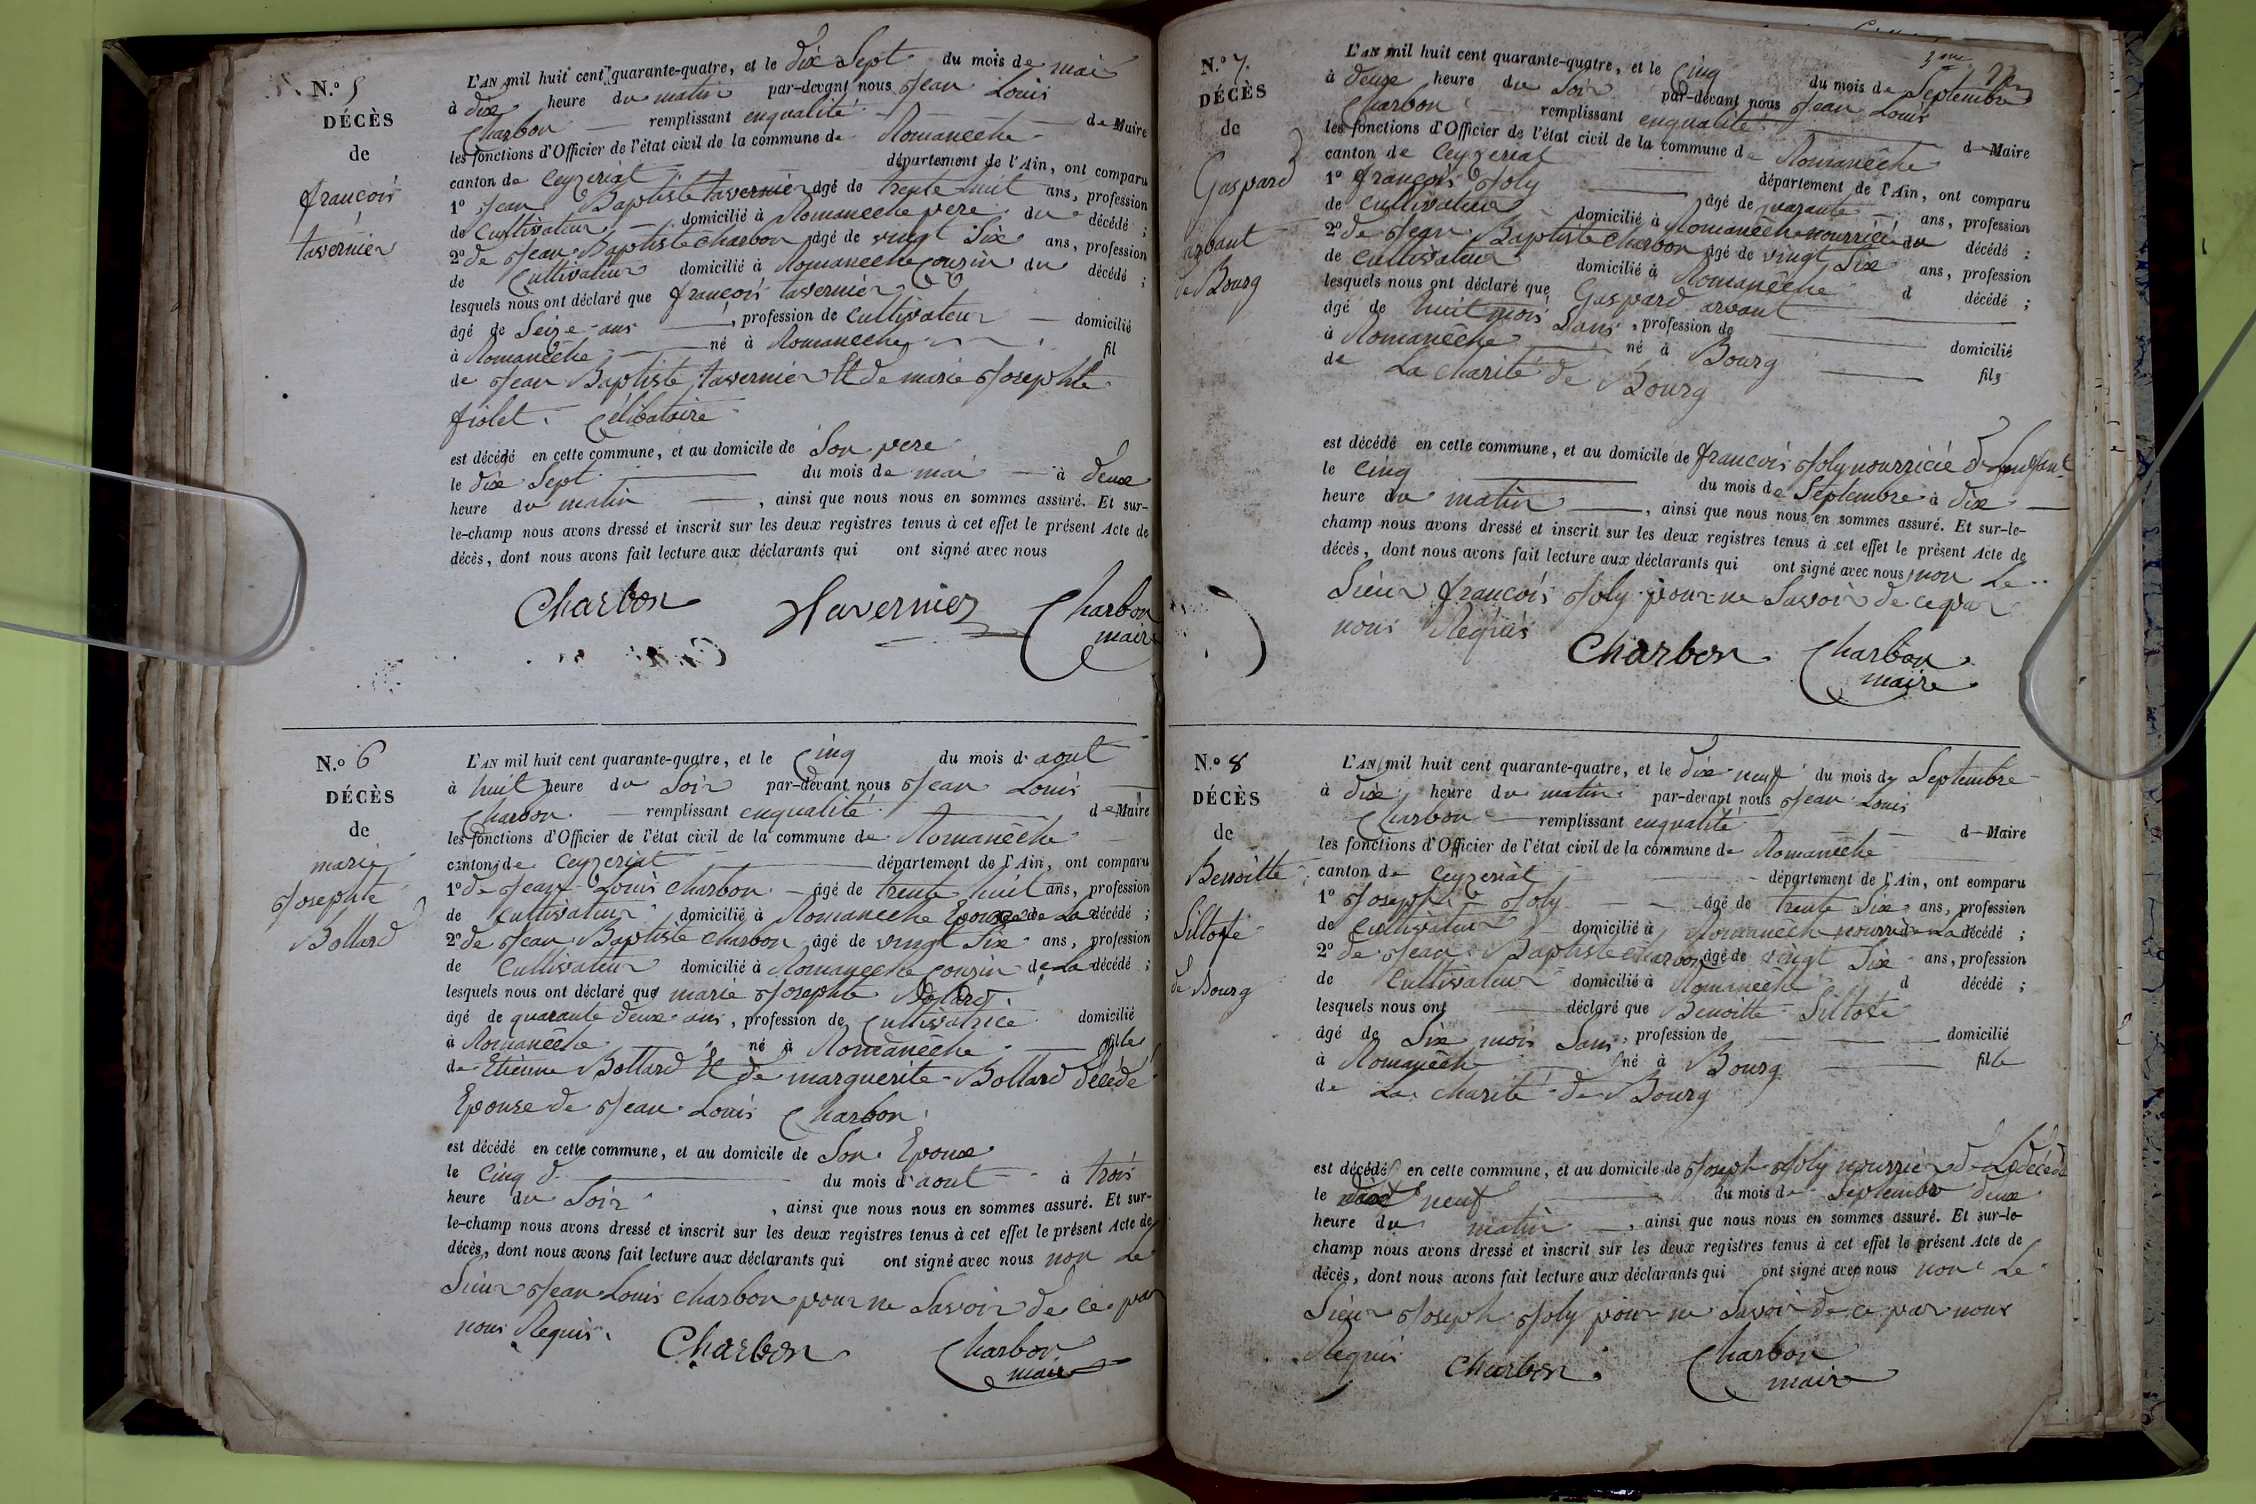 N.o 5
DÉCÈS
de
françois
tavernier
L'AN mil huit cent quarante-quatre, et le dix Sept du mois de mai
à dix heure du matin par-devant nous Jean Louis
Charbon remplissant enqualité de Maire
les fonctions d'Officier de l'état civil de la commune de Romanêche
canton de Ceyzeriat département de l'Ain, ont comparu
1o Jean Baptiste tavernier âgé de trente huit ans, profession
de Cultivateur domicilié à Romanêche pere du décédé ;
2o de Jean Baptiste Charbon âgé de vingt Six ans, profession
de Cultivateur domicilié à Romanêche Cousin du décédé ;
lesquels nous ont déclaré que françois tavernier
âgé de Seize ans, profession de Cultivateur domicilié
à Romanêche né à Romanêche fil
de Jean Baptiste tavernier Et de marie Josephte
fiolet. Célibatoire
est décédé en cette commune, et au domicile de Son pere
le dix Sept du mois de mai à deux
heure du matin, ainsi que nous nous en sommes assuré. Et sur-
le-champ nous avons dressé et inscrit sur les deux registres tenus à cet effet le présent Acte de
décès, dont nous avons fait lecture aux déclarants qui ont signé avec nous
Charbon Tavernier Charbon
maire
N.o 6
DÉCÈS
de
marie
Josephte
Bottard
L'AN mil huit cent quarante-quatre, et le Cinq du mois d aout
à huit heure du Soir par-devant nous Jean Louis
Charbon remplissant enqualité de Maire
les fonctions d'Officier de l'état civil de la commune de Romanêche
canton de Ceyzeriat département de l'Ain, ont comparu
1o de Jean Louis Charbon âgé de trente huit ans, profession
de Cultivateur domicilié à Romanêche Epouse de La décédé ;
2o de Jean Baptiste Charbon âgé de vingt Six ans, profession
de Cultivateur domicilié à Romanêche Cousin de La décédé ;
lesquels nous ont déclaré que marie Josephte Bottard
âgé de quarante deux ans, profession de Cultivatrice domicilié
à Romanêche né à Romanêche fille
de Etienne Bottard Et de marguerite Bottard Décédé
Epouse de Jean Louis Charbon
est décédé en cette commune, et au domicile de Son Epoux
le Cinq d du mois d'aout à trois
heure du Soir, ainsi que nous nous en sommes assuré. Et sur-
le-champ nous avons dressé et inscrit sur les deux registres tenus à cet effet le présent Acte de
décès, dont nous avons fait lecture aux déclarants qui ont signé avec nous non Le
Sieur Jean Louis Charbon pour ne Savoir de ce par
nous Requis.
Charbon Charbon
maire
N.o 7.
DÉCÈS
de
Gaspard
arvant
de Bourg
3me
L'AN mil huit cent quarante-quatre, et le Cinq du mois de Septembre
à deux heure du Soir par-devant nous Jean Louis
Charbon remplissant enqualité d Maire
les fonctions d'Officier de l'état civil de la commune de Romanêche
canton de Ceyzeriat département de l'Ain, ont comparu
1o françois Joly âgé de quarante ans, profession
de Cultivateur domicilié à Romanêche nourricié du décédé ;
2o de Jean Baptiste Charbon âgé de vingt Six ans, profession
de Cultivateur domicilié à Romanêche d décédé ;
lesquels nous ont déclaré que Gaspard arvant
âgé de huit mois Sans, profession de domicilié
à Romanêche né à Bourg fils
de La Charité de Bourg
est décédé en cette commune, et au domicile de françois Joly nourricié de Lenfant
le Cinq du mois de Septembre à dix
heure du matin, ainsi que nous nous en sommes assuré. Et sur-le-
champ nous avons dressé et inscrit sur les deux registres tenus à cet effet le présent Acte de
décès, dont nous avons fait lecture aux déclarants qui ont signé avec nous, non Le
Sieur françois Joly pour ne Savoir de ce par
nous Requis
Charbon Charbon
maire
N.o 8
DÉCÈS
de
Benoitte
Siltote
de Bourg
L'AN mil huit cent quarante-quatre, et le dix neuf du mois de Septembre
à dix heure du matin par-devant nous Jean Louis
Charbon remplissant enqualité d Maire
les fonctions d'Officier de l'état civil de la commune de Romanêche
canton de Ceyzeriat département de l'Ain, ont comparu
1o Joseph Joly âgé de trente Six ans, profession
de Cultivateur domicilié à Romanêch La décédé ;
2o de Jean Baptiste Charbon âgé de vingt Six ans, profession
de Cultivateur domicilié à Romanêche d décédé ;
lesquels nous ont déclaré que Benoitte Siltote
âgé de Six mois Sans, profession de domicilié
à Romanêche né à Bourg fille
de La Charité de Bourg
est décédé en cette commune, et au domicile de Joseph Joly nourricier de La décédé
le neuf du mois de Septembre deux
heure du matin, ainsi que nous nous en sommes assuré. Et sur-le-
champ nous avons dressé et inscrit sur les deux registres tenus à cet effet le présent Acte de
décès, dont nous avons fait lecture aux déclarants qui ont signé avec nous non Le
Sieur Joseph Joly pour ne Savoir de ce par nous
Requis
Charbon Charbon
maire